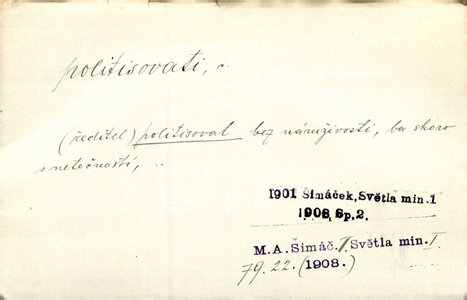 politisovati, v.
(ředitel) politisoval bez náruživosti, ba skoro
s netečností, ..
1901 Šimáček, Světla min.1
1908 Sp.2.
M.A. Šimáč. II Světla min. I.
79. 22. (1908.)